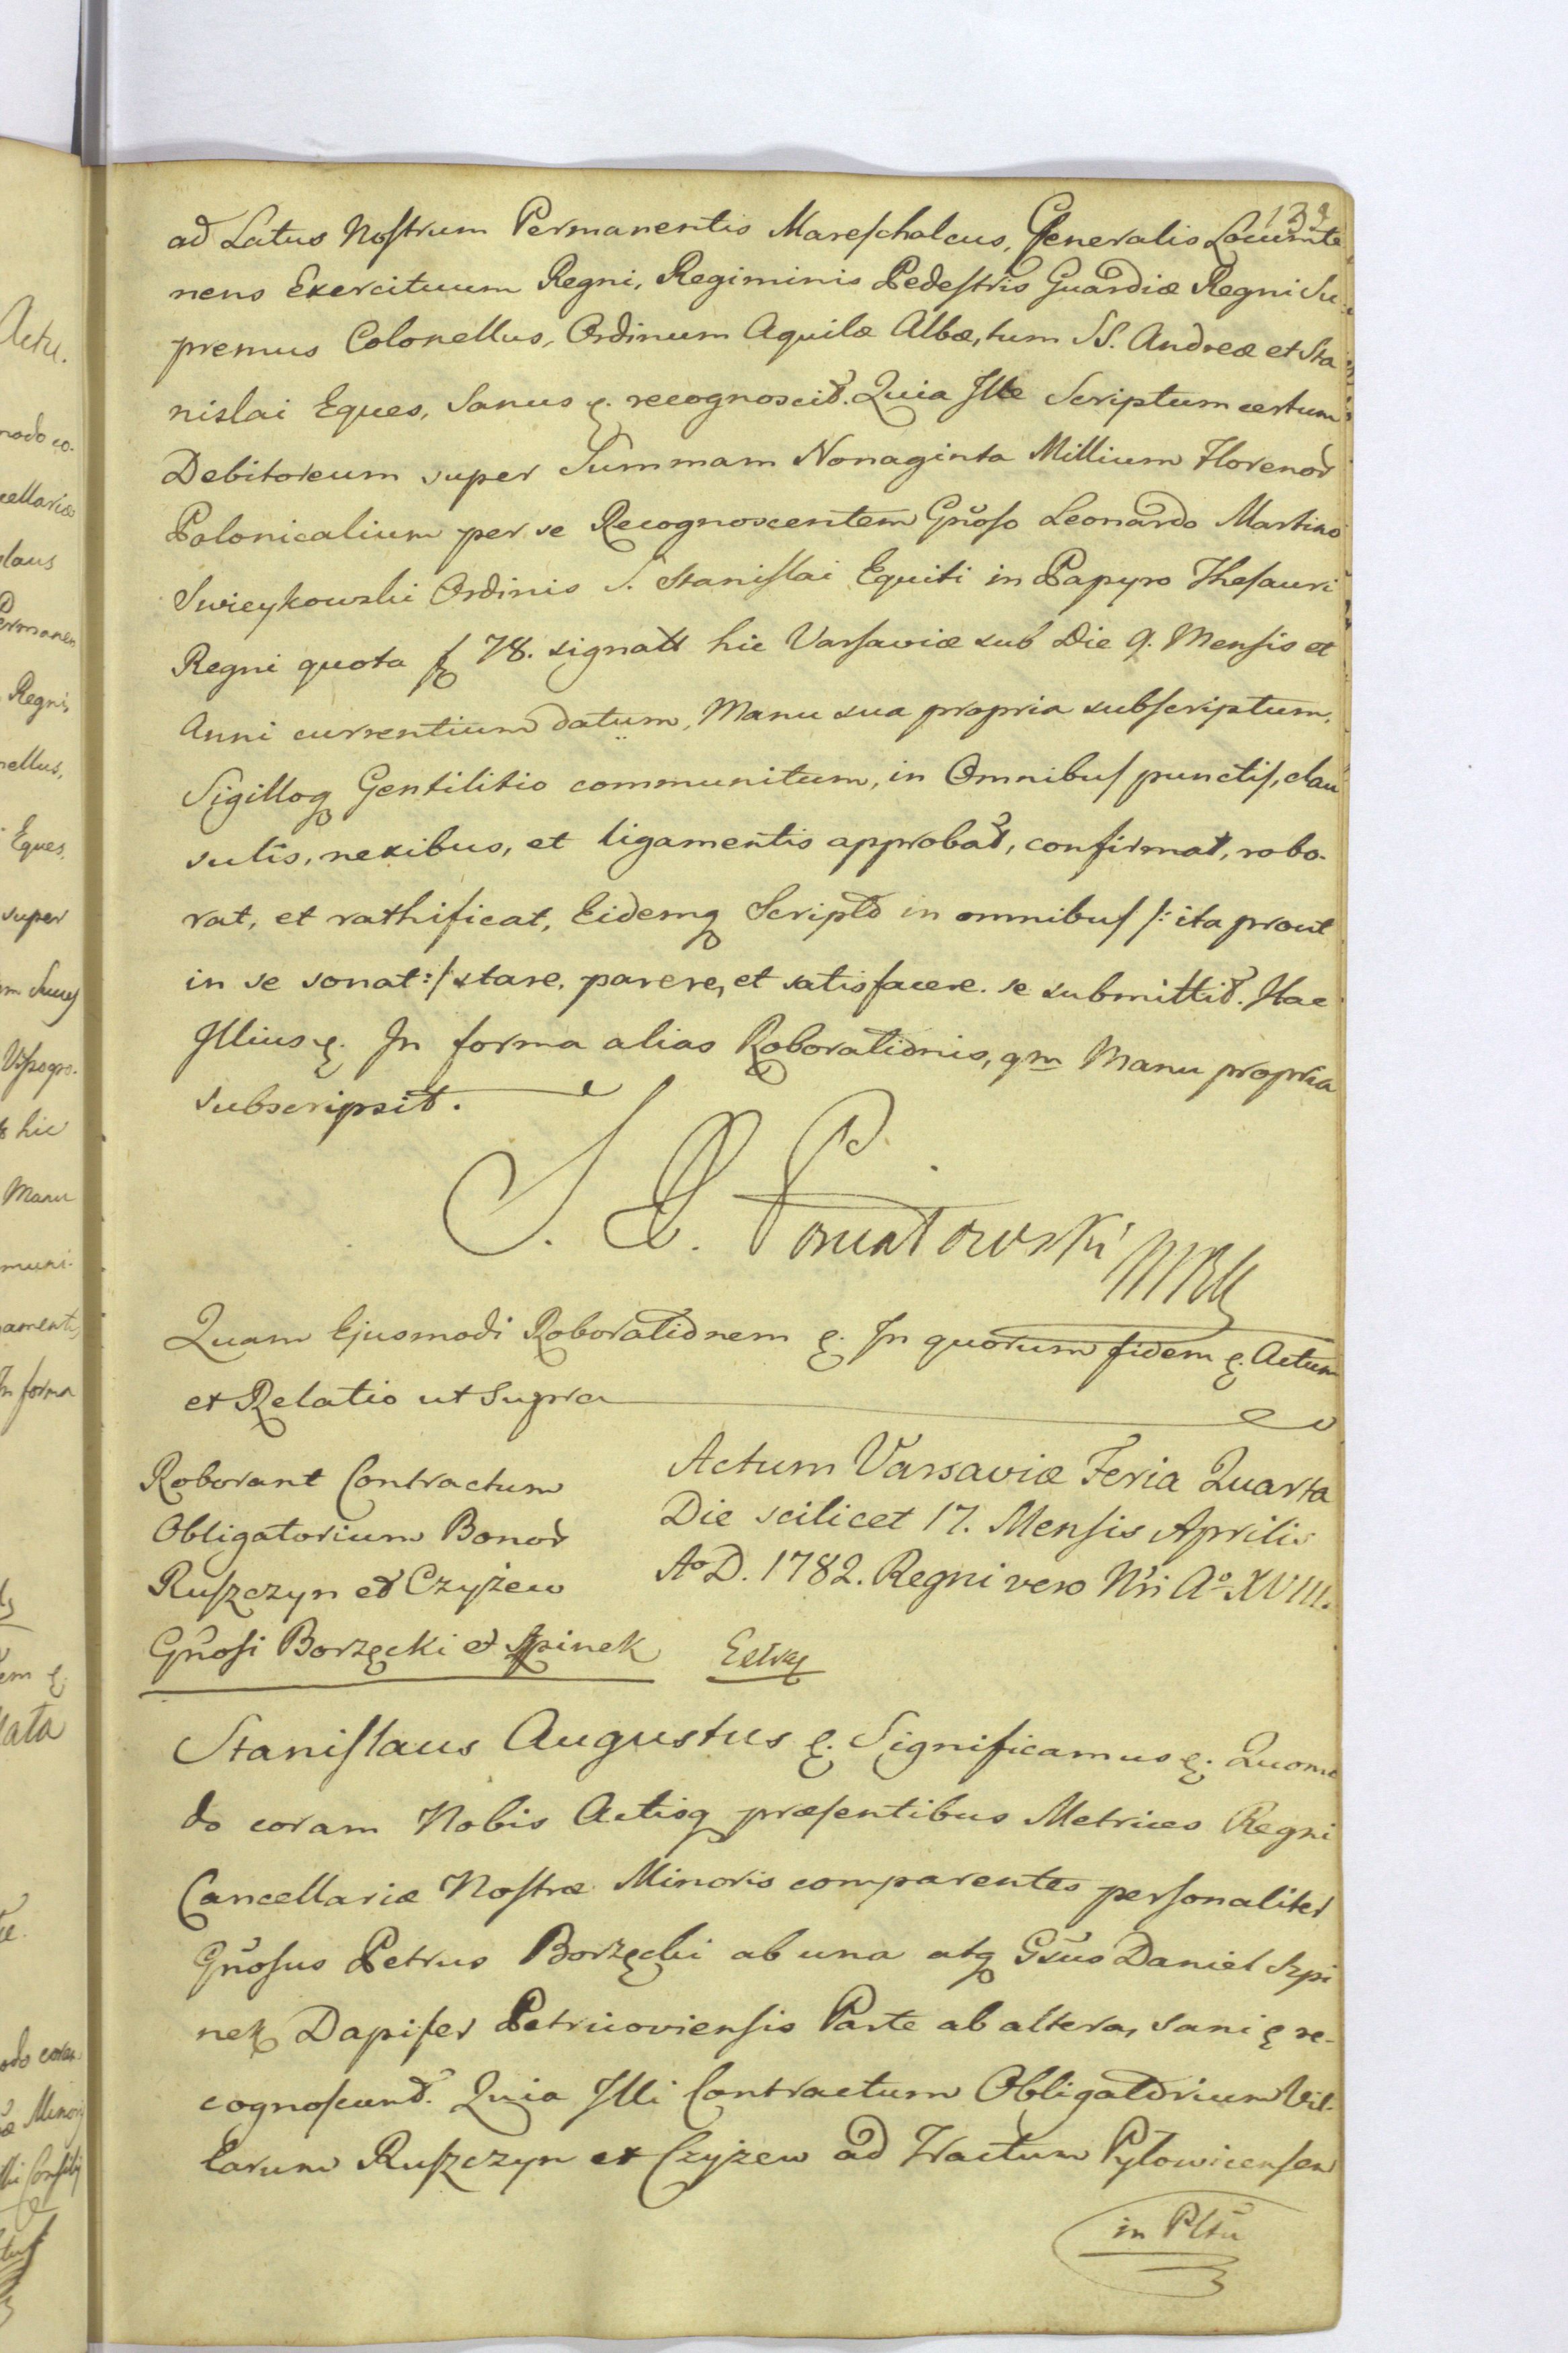 139
ad Latus Nostrum Permanentis Mareschalcus, Generalis Locumte
nens Exercituum Regni, Regiminis Pedestris Guardiæ Regni Su-
premus Colonellus, Ordinum Aquilæ Albæ, tum SS. Andreæ et Sta
nislai Eques, Sanus &. recognoscit. Quia Ille Scriptum certum
Debitoreum super Summam Nonaginta Millium Florenor
Polonicalium per se Recognoscentem Gnoso Leonardo Martino
Swieykowski Ordinis S. Stanislai Equiti in Papyro Thesauri
Regni quota 78. signatt hic Varsaviæ sub Die 9. Mensis et
Anni currentium datum, Manu sua propria subscriptum,
Sigilloq Gentilitio communitum, in Omnibus punctis, clau
sulis, nexibus, et ligamentis approbat, confirmat, robo-
rat, et rathificat, Eidemq Scripto in omnibus /: ita prout
in se sonat :/ stare, parere, et satisfacere se submittit. Hac
Illius &. In forma alias Roborationis, qm Manu propria
subscripsit.
S. P. Poniatowski
Quam Ejusmodi Roborationem &. In quorum fidem &. Actum
et Relatio ut Supra
Roborant Contractum
Obligatorium Bonor
Ruszczyn et Czyżew
Gnosi Borzęcki et Szpinek
Actum Varsaviæ Feria Quarta
Die scilicet 17. Mensis Aprilis
Ao D. 1782. Regni vero Nri Ao XVIII.
Stanislaus Augustus &. Significamus &. Quomo
do coram Nobis Actisq præsentibus Metrices Regni
Cancellariæ Nostræ Minoris comparentes personaliter
Gnosus Petrus Borzęcki ab una atq Gsus Daniel Szpi
nek Dapifer Petricoviensis Parte ab altera, sani & re-
cognoscunt. Quia Illi Contractum Obligatorium Vil-
larum Ruszczyn et Czyżew ad Tractum Pytowicensem
in Pltu